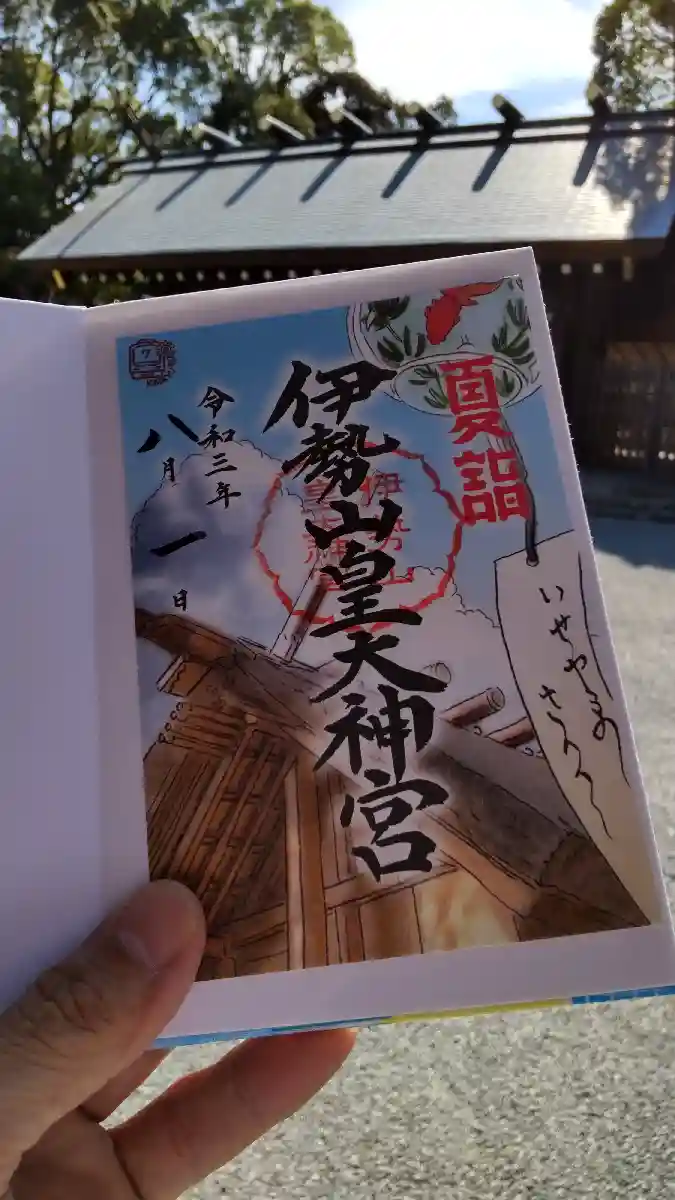 夏詣
いせやまの
伊勢山皇大神宮
伊勢山
皇大神宮
令和三年
八月一日
7